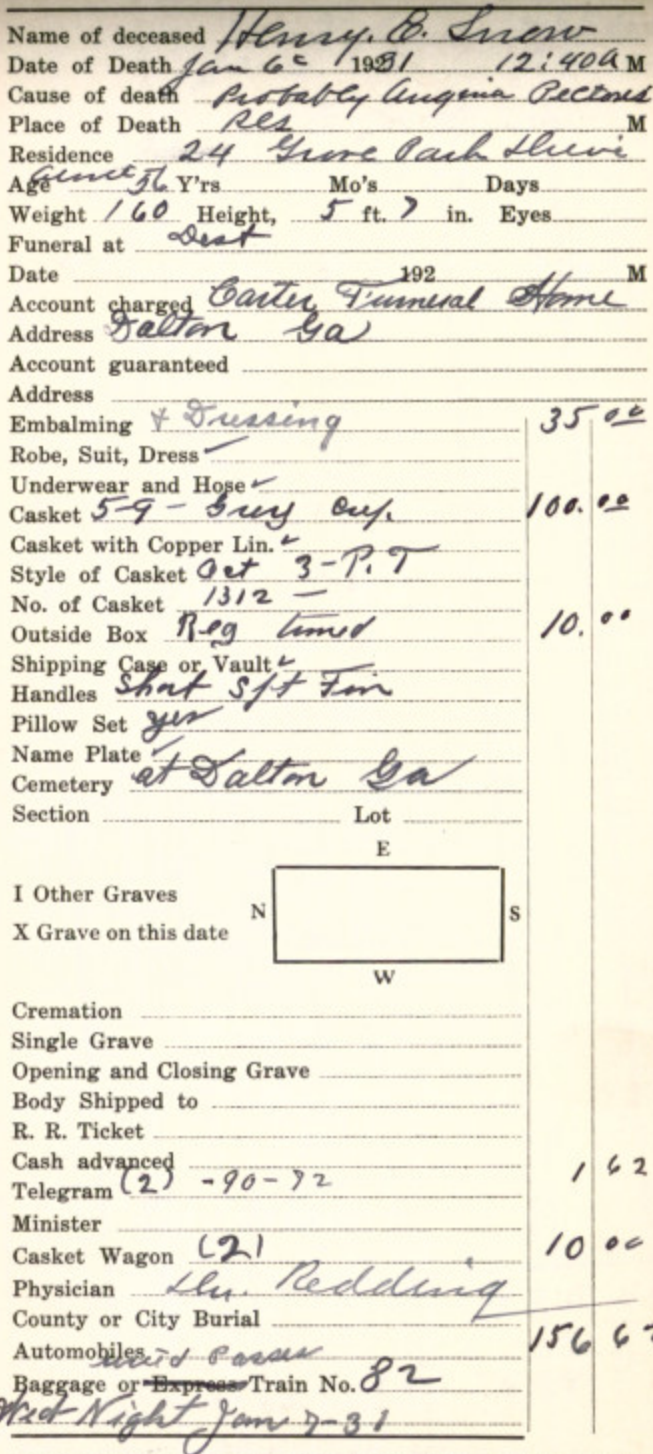 Name of deceased Henry. O. Snow
Date of Death Jan 6 1931 12:40 a M
Cause of death Probably Angina Pectoris
Place of Death Res M
Residence 24 Grove Park Drive
Age 56 Y'rs Mo's Days
Weight 160 Height, 5 ft. 7 in. Eyes
Funeral at Dest
Date 192 M
Account charged Carter Funeral Home
Address Dalton Ga
Account guaranteed
Address
Embalming & Dressing 35 00
Robe, Suit, Dress ✓
Underwear and Hose ✓
Casket 5-9 - Grey 100.00
Casket with Copper Lin. ✓
Style of Casket Oct 3-P.T
No. of Casket 1312 -
Outside Box Reg 10.00
Shipping Case or Vault ✓
Handles Short
Pillow Set yes
Name Plate ✓
Cemetery at Dalton Ga
Section Lot
E
I Other Graves
N S
X Grave on this date
W
Cremation
Single Grave
Opening and Closing Grave
Body Shipped to
R. R. Ticket
Cash advanced
Telegram (2) -90-72 1 62
Minister
Casket Wagon (2) 10 00
Physician Dr. Redding
County or City Burial
Automobiles 156 62
Baggage or Express Train No. 82
Wed Night Jan 7-31